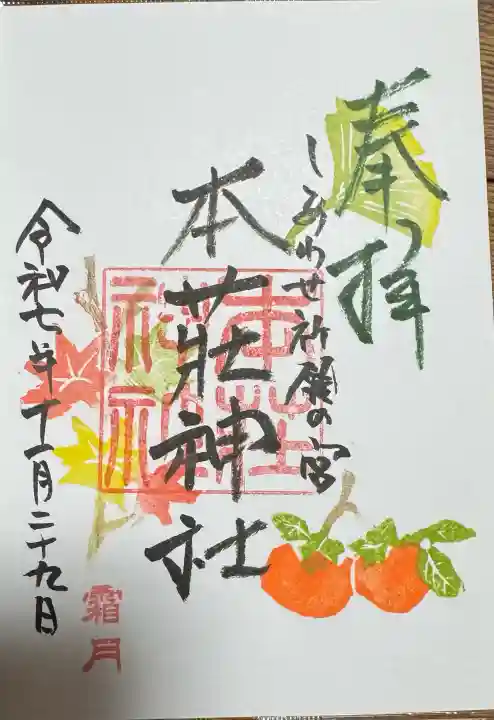 奉拝
しあわせ祈願の宮
本荘神社
本荘神社
令和七年十一月二十九日
霜月